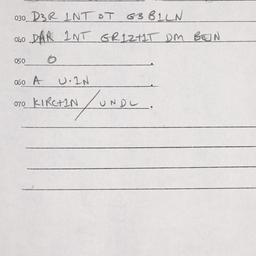 030 D3R INT OT G3B1LN
040 DAR 1NT GR1Z+1T DM BEIN
050 O .
060 A U.IN .
070 KIRC+IN / UNDL .